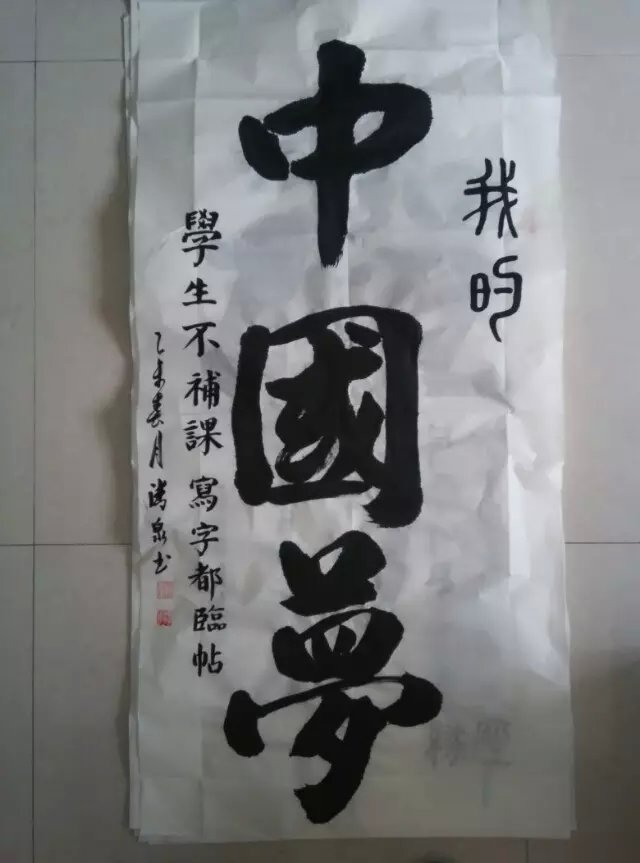 我的
中國夢
學生不補課 寫字都臨帖
乙未春月 泉书